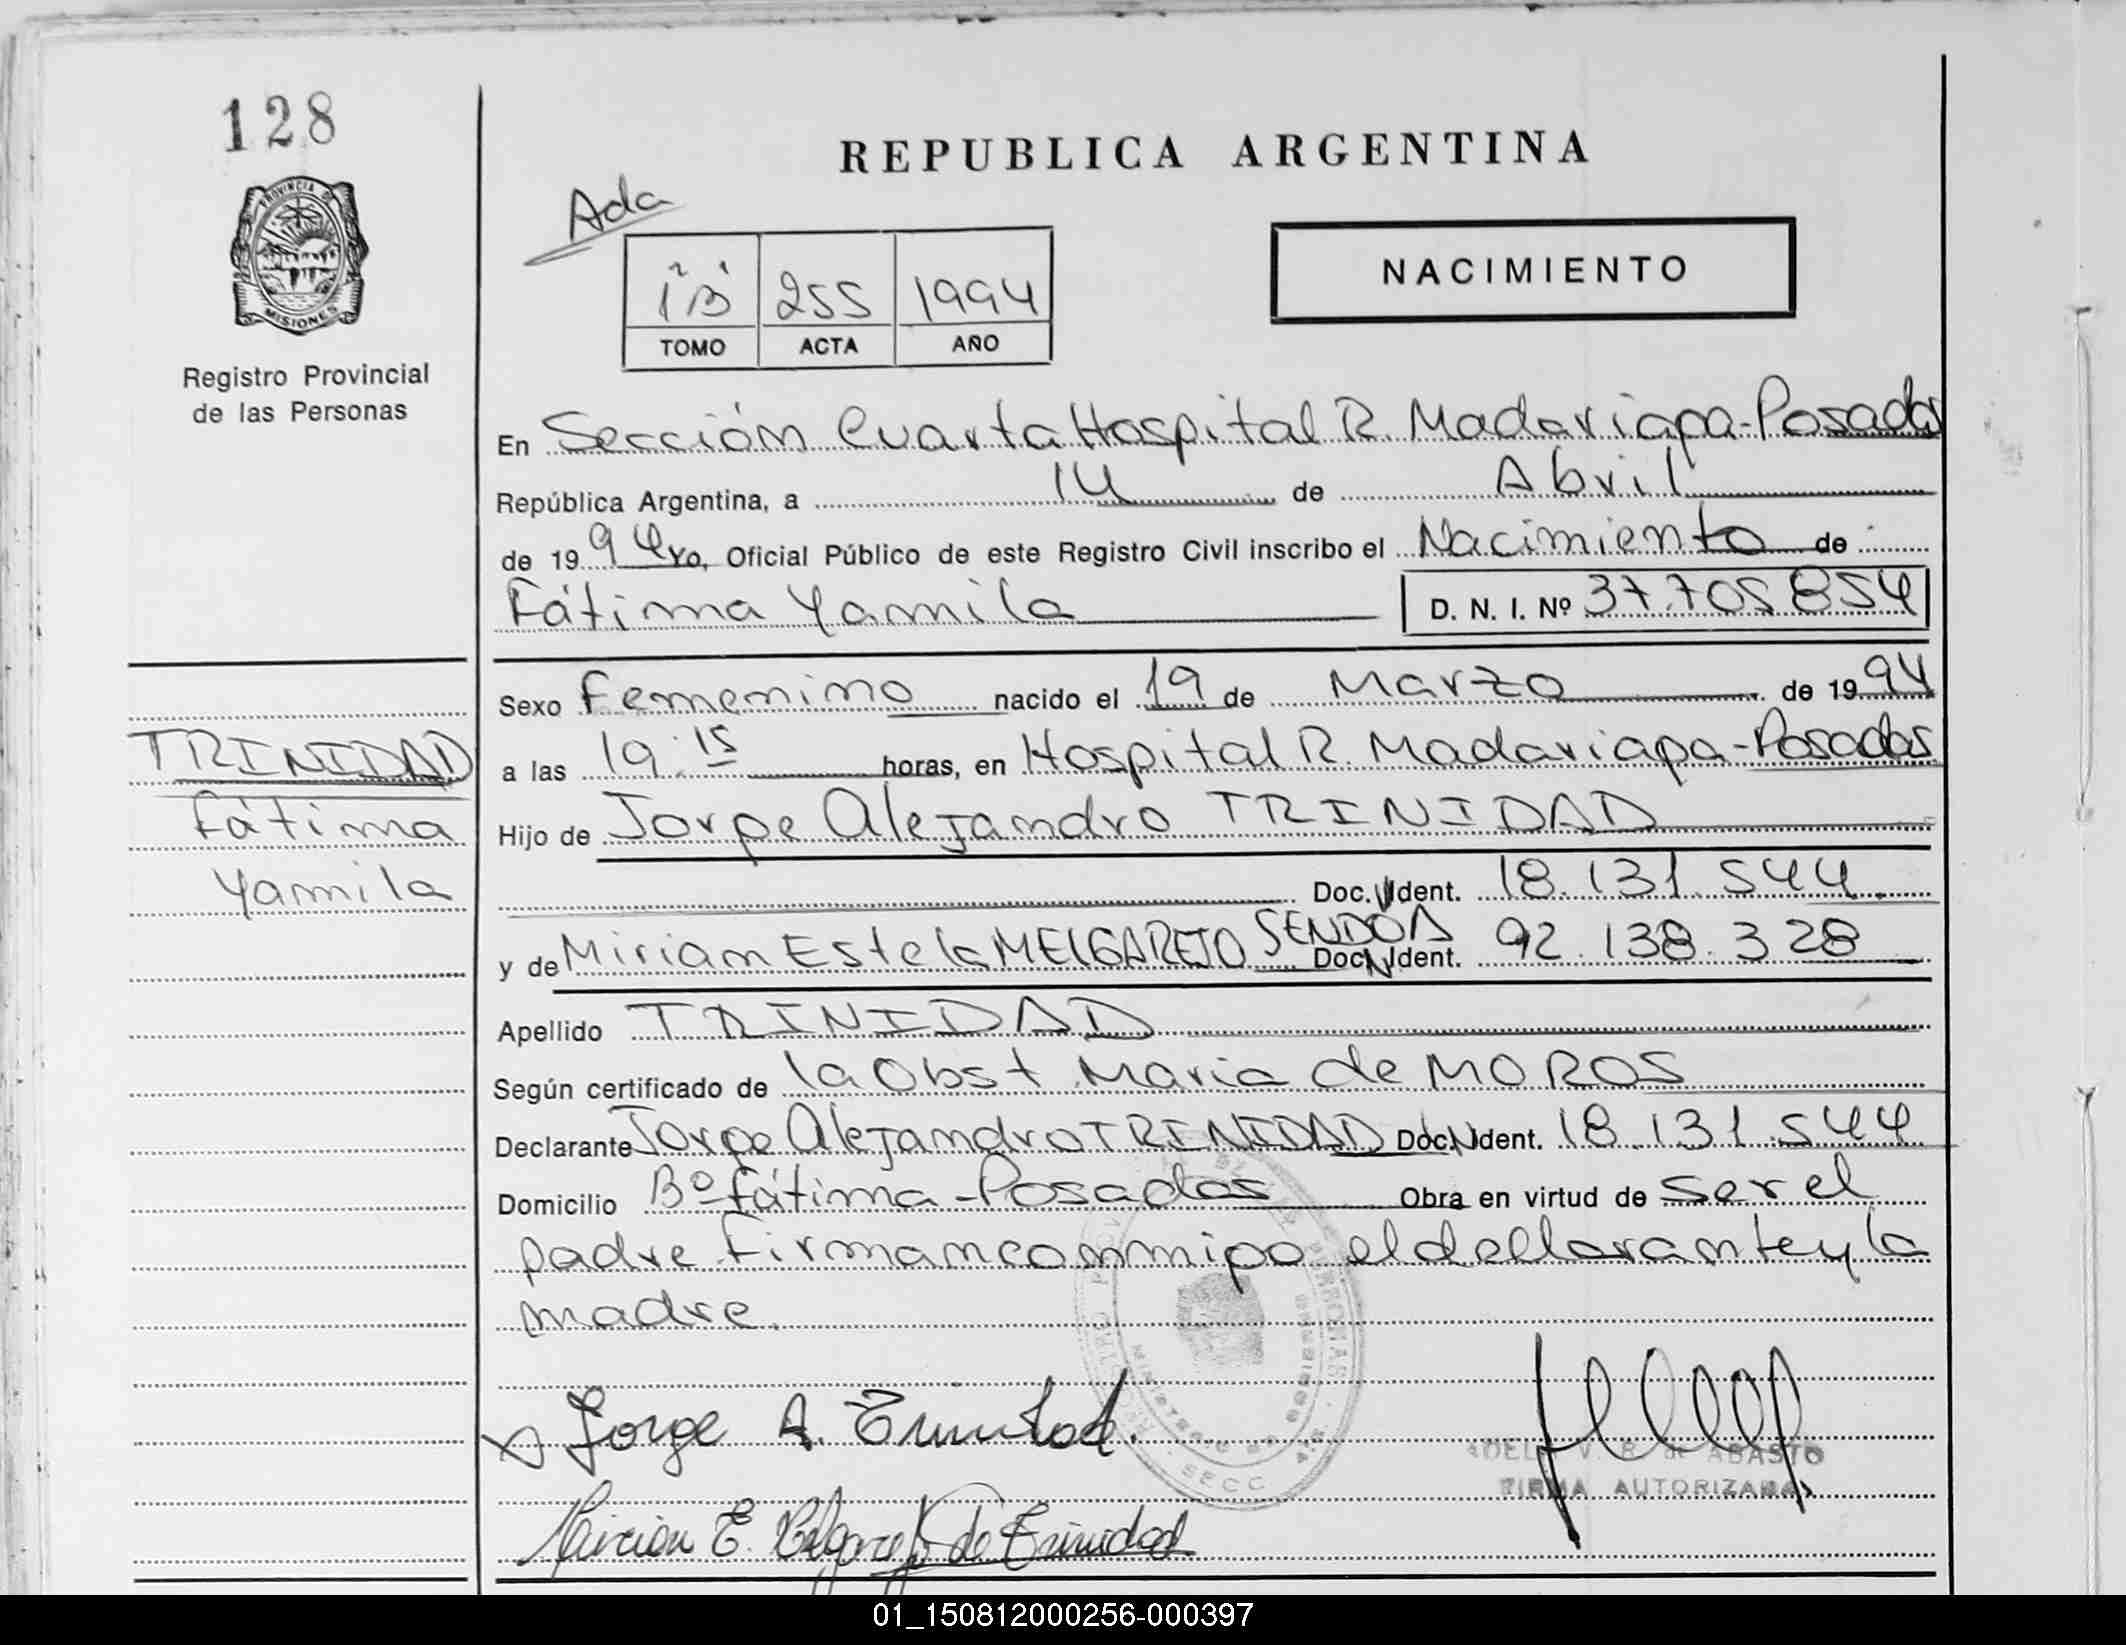 128
PROVINCIA DE
MISIONES
Registro Provincial
de las Personas
REPUBLICA ARGENTINA
Ada
1º B 255 1994
TOMO ACTA AÑO
NACIMIENTO
En Sección Cuarta Hospital R. Madariaga-Posadas
República Argentina, a 14 de Abril
de 1994 yo, Oficial Público de este Registro Civil inscribo el Nacimiento de
Fátima Yamila D. N. I. Nº 37.705 854
Sexo Femenino nacido el 19 de Marzo de 1994
a las 19:15 horas, en Hospital R. Madariaga-Posadas
Hijo de Jorge Alejandro TRINIDAD
Doc. Ident. 18.131.544.
y de Miriam Estela MELGAREJO SENDOA Doc. Ident. 92.138.328
Apellido TRINIDAD
Según certificado de la Obst Maria de MOROS
Declarante Jorge Alejandro TRINIDAD Doc. Ident. 18.131.544
Domicilio Bº Fátima-Posadas Obra en virtud de ser el
padre Firman conmigo el declarante y la
madre.
TRINIDAD
Fátima
Yamila
Jorge A. Trinidad.
V. B. de ABASTO
FIRMA AUTORIZADA
SECC
Miriam E. Melgarejo de Trinidad
01_150812000256-000397